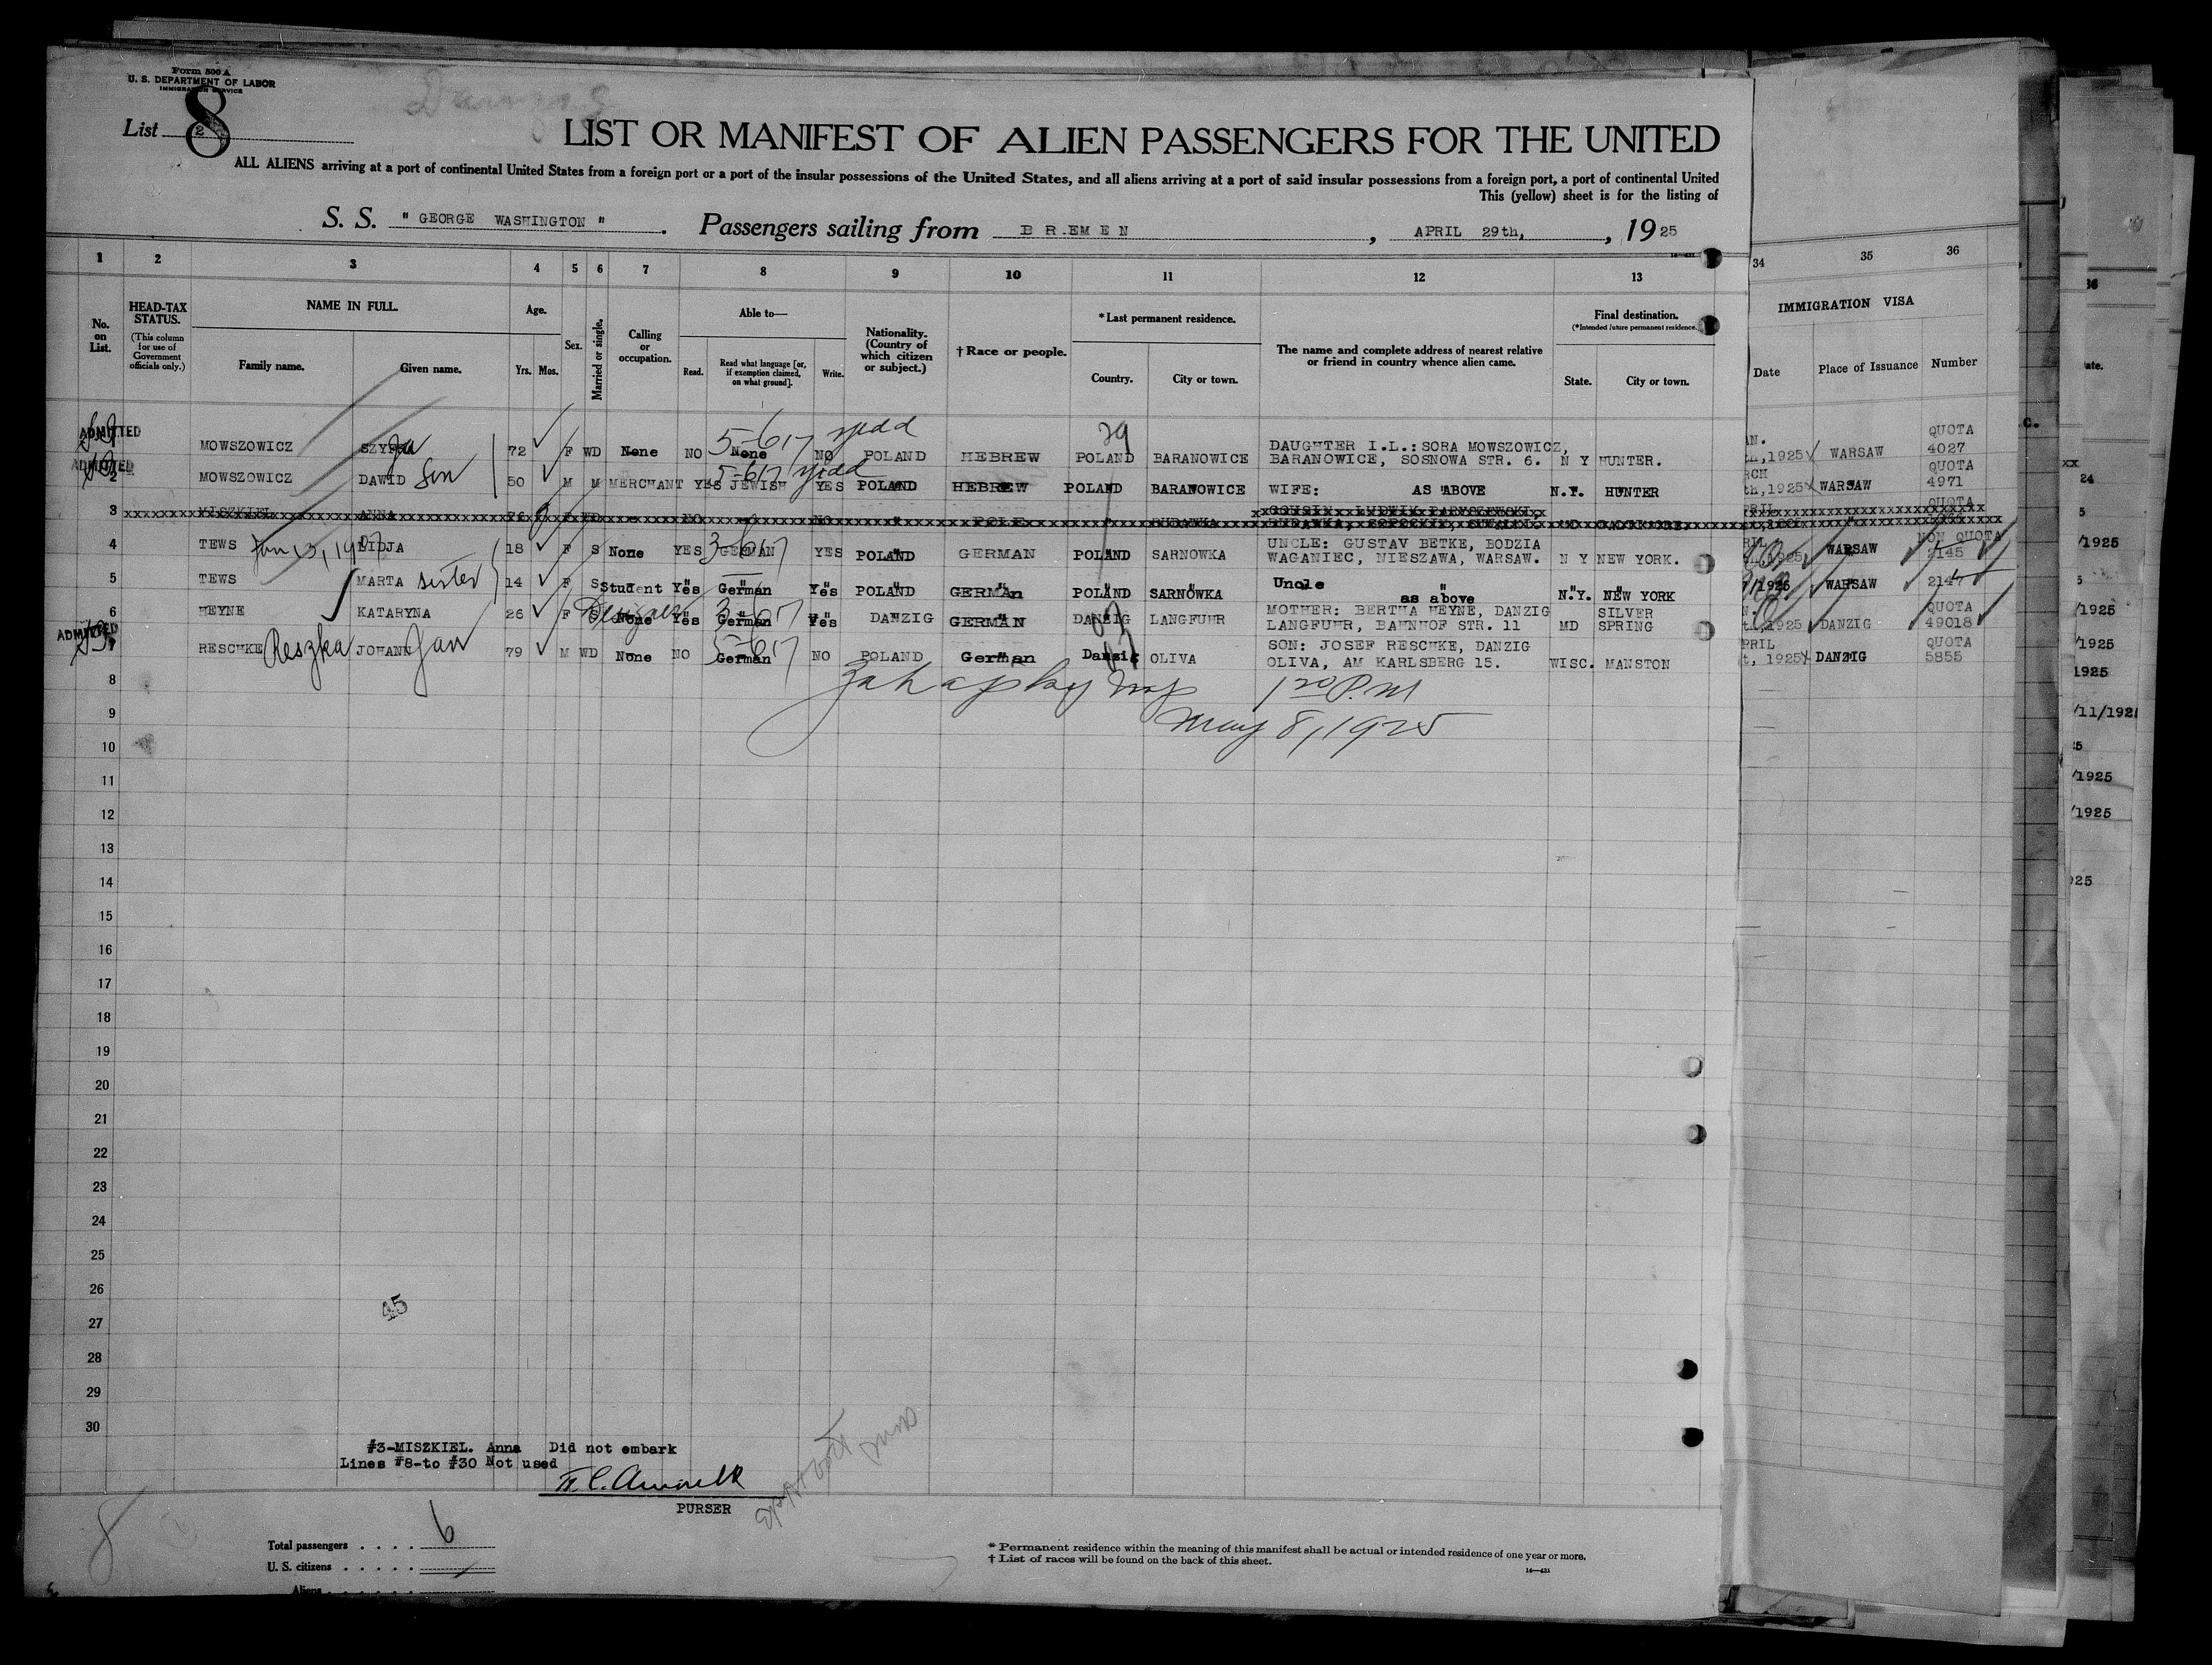 Form 500 A
U. S. DEPARTMENT OF LABOR
IMMIGRATION SERVICE
List 2 8
LIST OR MANIFEST OF ALIEN PASSENGERS FOR THE UNITED
ALL ALIENS arriving at a port of continental United States from a foreign port or a port of the insular possessions of the United States, and all aliens arriving at a port of said insular possessions from a foreign port, a port of continental United
This (yellow) sheet is for the listing of
S. S. " GEORGE WASHINGTON ". Passengers sailing from BREMEN, APRIL 29th, , 1925
1 2 3 4 5 6 7 8 9 10 11 12 13 34 35 36
No. on List.
HEAD-TAX STATUS. (This column for use of Government officials only.)
NAME IN FULL. Family name. Given name.
Age. Yrs. Mos.
Sex.
Married or single.
Calling or occupation.
Able to— Read. Read what language [or, if exemption claimed, on what ground]. Write.
Nationality. (Country of which citizen or subject.)
† Race or people.
* Last permanent residence. Country. City or town.
The name and complete address of nearest relative or friend in country whence alien came.
Final destination. (*Intended future permanent residence.) State. City or town.
IMMIGRATION VISA Date Place of Issuance Number
ADMITTED MOWSZOWICZ 72 F WD None NO None 5-617 yidd NO POLAND HEBREW POLAND 29 BARANOWICE DAUGHTER I.L.: SORA MOWSZOWICZ, BARANOWICE, SOSNOWA STR. 6. N Y HUNTER. th,1925 WARSAW QUOTA 4027
ADMITTED 2 MOWSZOWICZ DAWID Son 50 M M MERCHANT YES JEWISH 5-617 yidd YES POLAND HEBREW POLAND BARANOWICE WIFE: AS ABOVE N.Y. HUNTER RCH th,1925 WARSAW QUOTA 4971
3 MISZKIEL ANNA WD NO NO " POLE COUSIN: LUDWIK QUOTA
4 TEWS Jan 13, 1907 LIDJA 18 F S None YES GERMAN 3-617 YES POLAND GERMAN POLAND SARNOWKA UNCLE: GUSTAV BETKE, BODZIA WAGANIEC, NIESZAWA, WARSAW. N Y NEW YORK. RIL 1925 WARSAW NON QUOTA 2145
5 TEWS MARTA sister 14 F S Student Yes German Yes POLAND GERMAN POLAND SARNOWKA Uncle as above N.Y. NEW YORK /1925 WARSAW 2147
6 HEYNE KATARYNA 26 F S None Designer Yes German 3-617 Yes DANZIG GERMAN DANZIG LANGFUHR MOTHER: BERTHA HEYNE, DANZIG LANGFUHR, BAHNHOF STR. 11 MD SILVER SPRING 1925 DANZIG QUOTA 49018
ADMITTED RESCHKE Reszka JOHANN Jan 79 M WD None NO German 5-617 NO POLAND German Danzig OLIVA SON: JOSEF RESCHKE, DANZIG OLIVA, AM KARLSBERG 15. WISC. MANSTON PRIL t, 1925 DANZIG QUOTA 5855
8
1 20 P.M
9 May 8, 1925
10
11
12
13
14
15
16
17
18
19
20
21
22
23
24
25
26
45
27
28
29
30
#3-MISZKIEL. Anna Did not embark
Lines #8-to #30 Not used
PURSER
8
Total passengers . . . . 6
U. S. citizens . . . . .
Aliens . . . . . .
* Permanent residence within the meaning of this manifest shall be actual or intended residence of one year or more.
† List of races will be found on the back of this sheet.
14—421